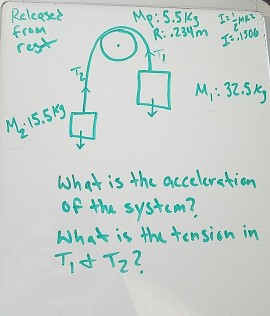 Released from rest
Mp: 5.5 Kg
R: .234m
I = 1/2 MR²
I = .1506
T₂
T₁
M₁: 32.5 Kg
M₂: 15.5 Kg
What is the acceleration
of the system?
What is the tension in
T₁ & T₂?